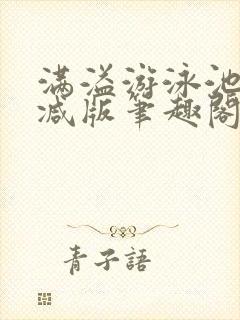 满溢游泳池
减版笔趣阁
青子語